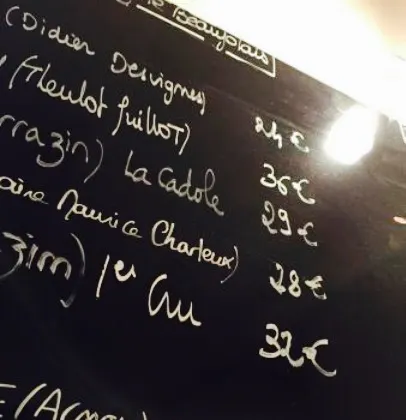 le Beaujolais
(Didier Desvignes) 24€
(Meulot Guillot) 36€
rrazin) La Cadole 29€
aine Maurice Charleux) 28€
zin) 1er Cru 32€